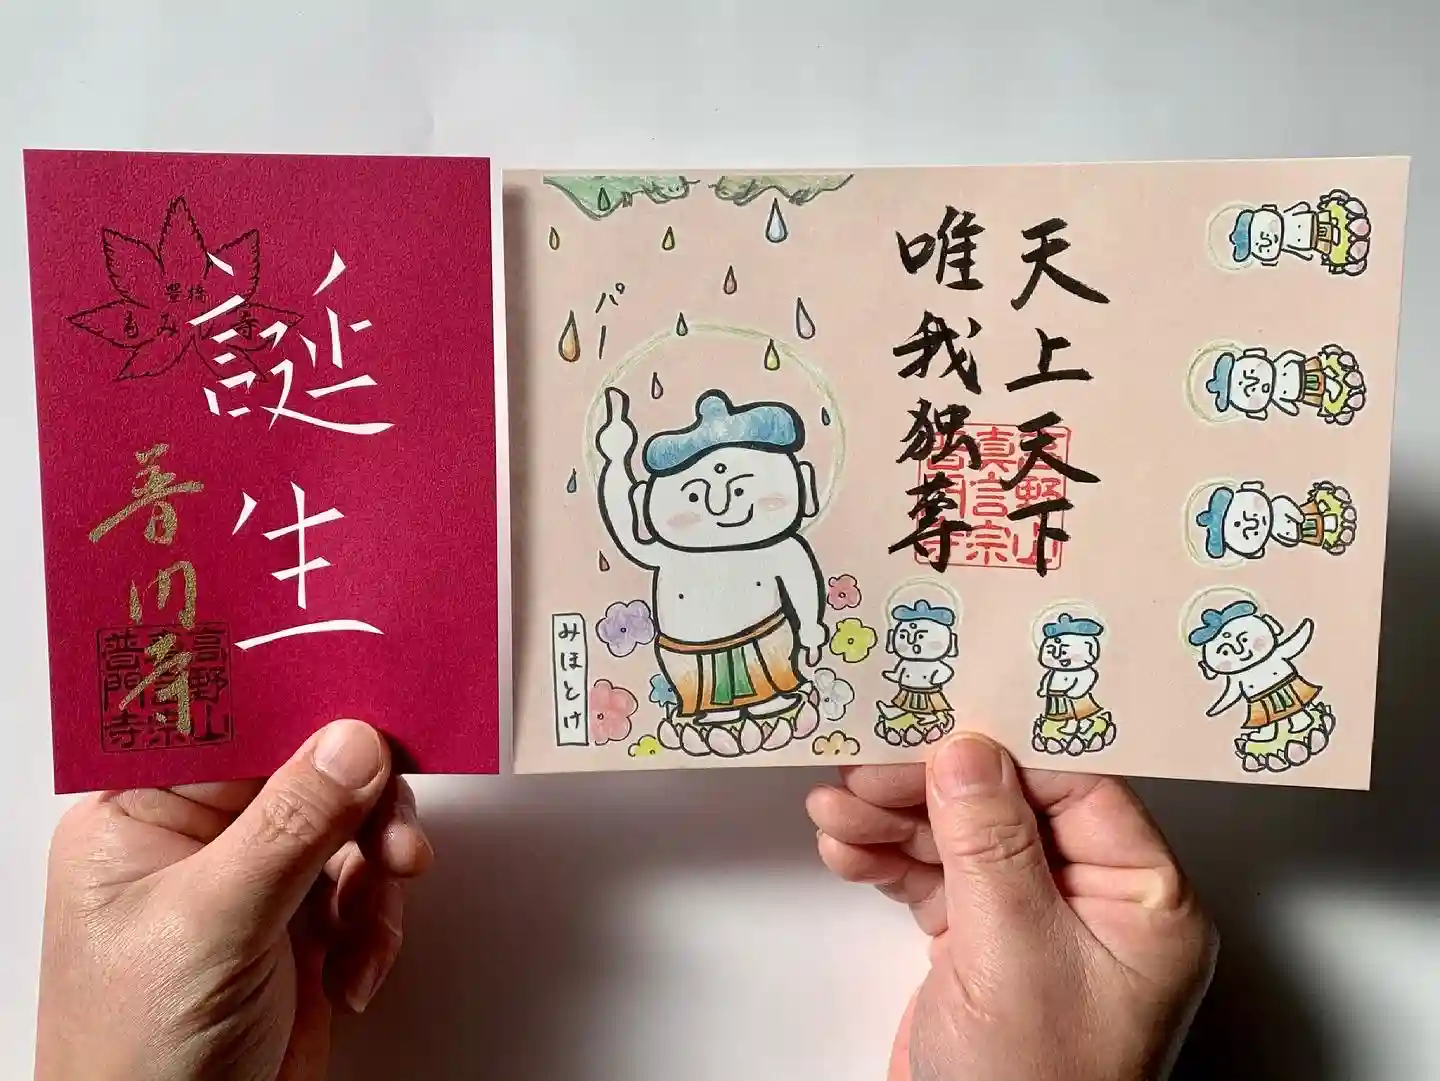 豊橋
もみじ寺
誕生
普門寺
高野山
真言宗
普門寺
パー
みほとけ
天上天下
唯我独尊
高野山
真言宗
普門寺